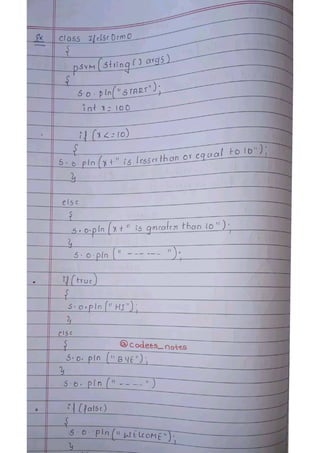 Ex class IfelseDemo
{
psvm (string [] args)
{
s.o.pln("START");
int x = 100
if (x<=10)
{
s.o.pln (x+" is lesser than or equal to 10");
}
else
{
s.o.pln (x+" is greater than 10");
}
s.o.pln (" ----- ");
if (true)
{
s.o.pln ("HI");
}
else
{
@codees_notes
s.o.pln ("BYE");
}
s.o. pln (" ---- ")
if (false)
{
s.o.pln ("WELCOME");
}